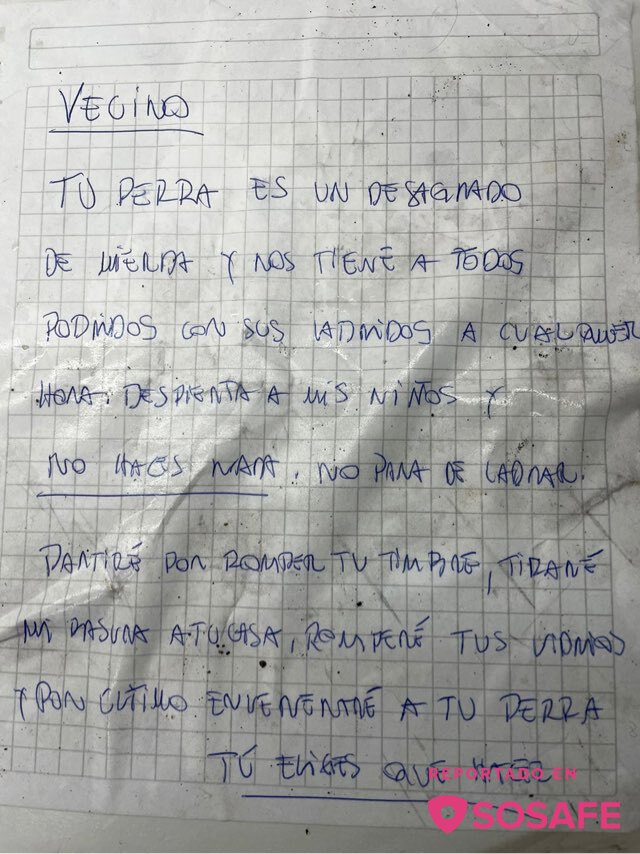 VECINO
TU PERRA ES UN DESAGRADO
DE MIERDA Y NOS TIENE A TODOS
PODRIDOS CON SUS LADRIDOS A CUALQUIER
HORA. DESPIERTA A MIS NIÑOS Y
NO HACES NADA. NO PARA DE LADRAR.
PARTIRÉ POR ROMPER TU TIMBRE, TIRARÉ
MI BASURA A TU CASA, ROMPERÉ TUS VIDRIOS
Y POR ÚLTIMO ENVENENARÉ A TU PERRA
TÚ ELIGES QUE HACER
REPORTADO EN
SOSAFE